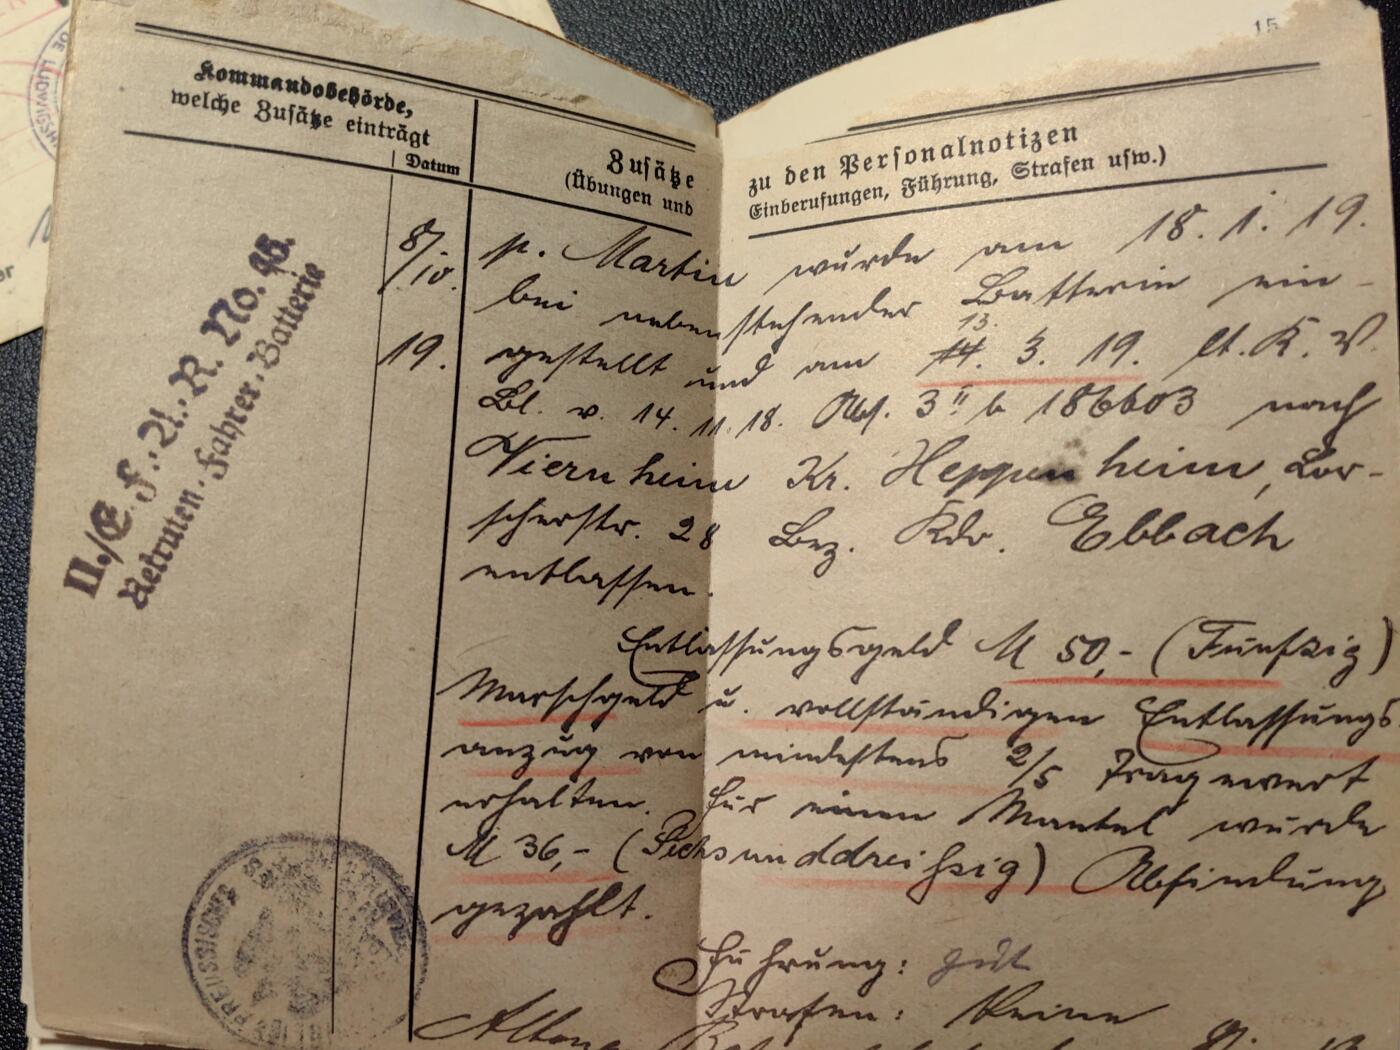 15
Kommandobehörde,
welche Zusätze einträgt
Datum
Zusätze zu den Personalnotizen
(Übungen und Einberufungen, Führung, Strafen usw.)
II./E. F. A. R. No. 45.
Rekruten-Fahrer-Batterie
8/10. 19.
p. Martin wurde am 18. 1. 19.
bei nebenstehender Batterie ein-
gestellt und am 13. 3. 19. lt. K. V.
Bl. v. 14. 11. 18. Abs. 3 b 186603 nach
Viernheim Kr. Heppenheim, Lor-
scherstr. 28 Bez. Kdo. Ebbach
entlassen.
Entlassungsgeld M 50,- (Fünfzig)
Marschgeld u. vollständigen Entlassungs
anzug von mindestens 2/5 Tragewert
erhalten. Für einen Mantel wurde
M 36,- (Sechsunddreißig) Abfindung
gezahlt.
Führung: gut
Strafen: Keine
PREUSSISCHES
LUDWIGSH